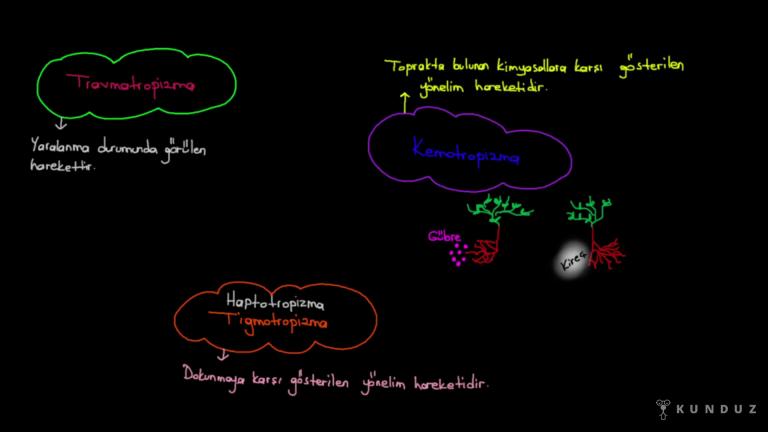 Travmatropizma
Yaralanma durumunda görülen
harekettir.
Toprakta bulunan kimyasallara karşı gösterilen
yönelim hareketidir.
Kemotropizma
Gübre
Kireç
Haptotropizma
Tigmotropizma
Dokunmaya karşı gösterilen yönelim hareketidir.
KUNDUZ